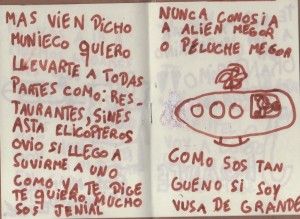 MAS VIEN DICHO
MUNIECO QUIERO
LLEVARTE A TODAS
PARTES COMO: RES-
TAURANTES, SINES
ASTA ELICOPTEROS
OVIO SI LLEGO A
SUVIRME A UNO
COMO YA TE DIGE
TE QUIERO MUCHO
SOS JENIAL
NUNCA CONOSIA
A ALIEN MEGOR
O PELUCHE MEGOR
COMO SOS TAN
GUENO SI SOY
VUSA DE GRANDE